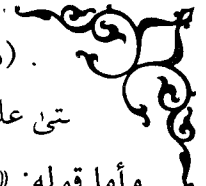 . (و
ـتىٰ علـ
وأما قوله: «